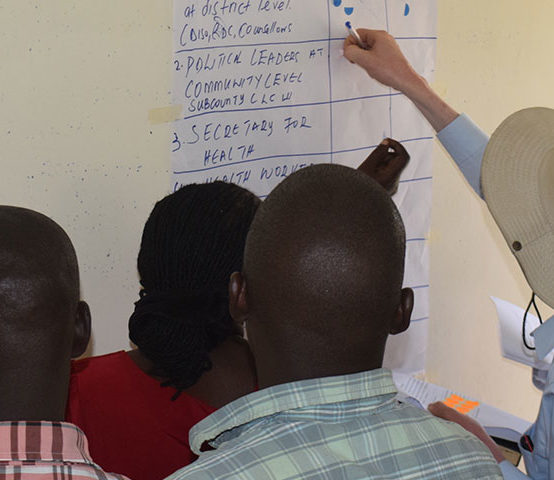 at district level.
(DISO, RDC, Counsellors
2. POLITICAL LEADERS AT
COMMUNITY LEVEL
SUBCOUNTY LC III
3. SECRETARY FOR
HEALTH
HEALTH WORK